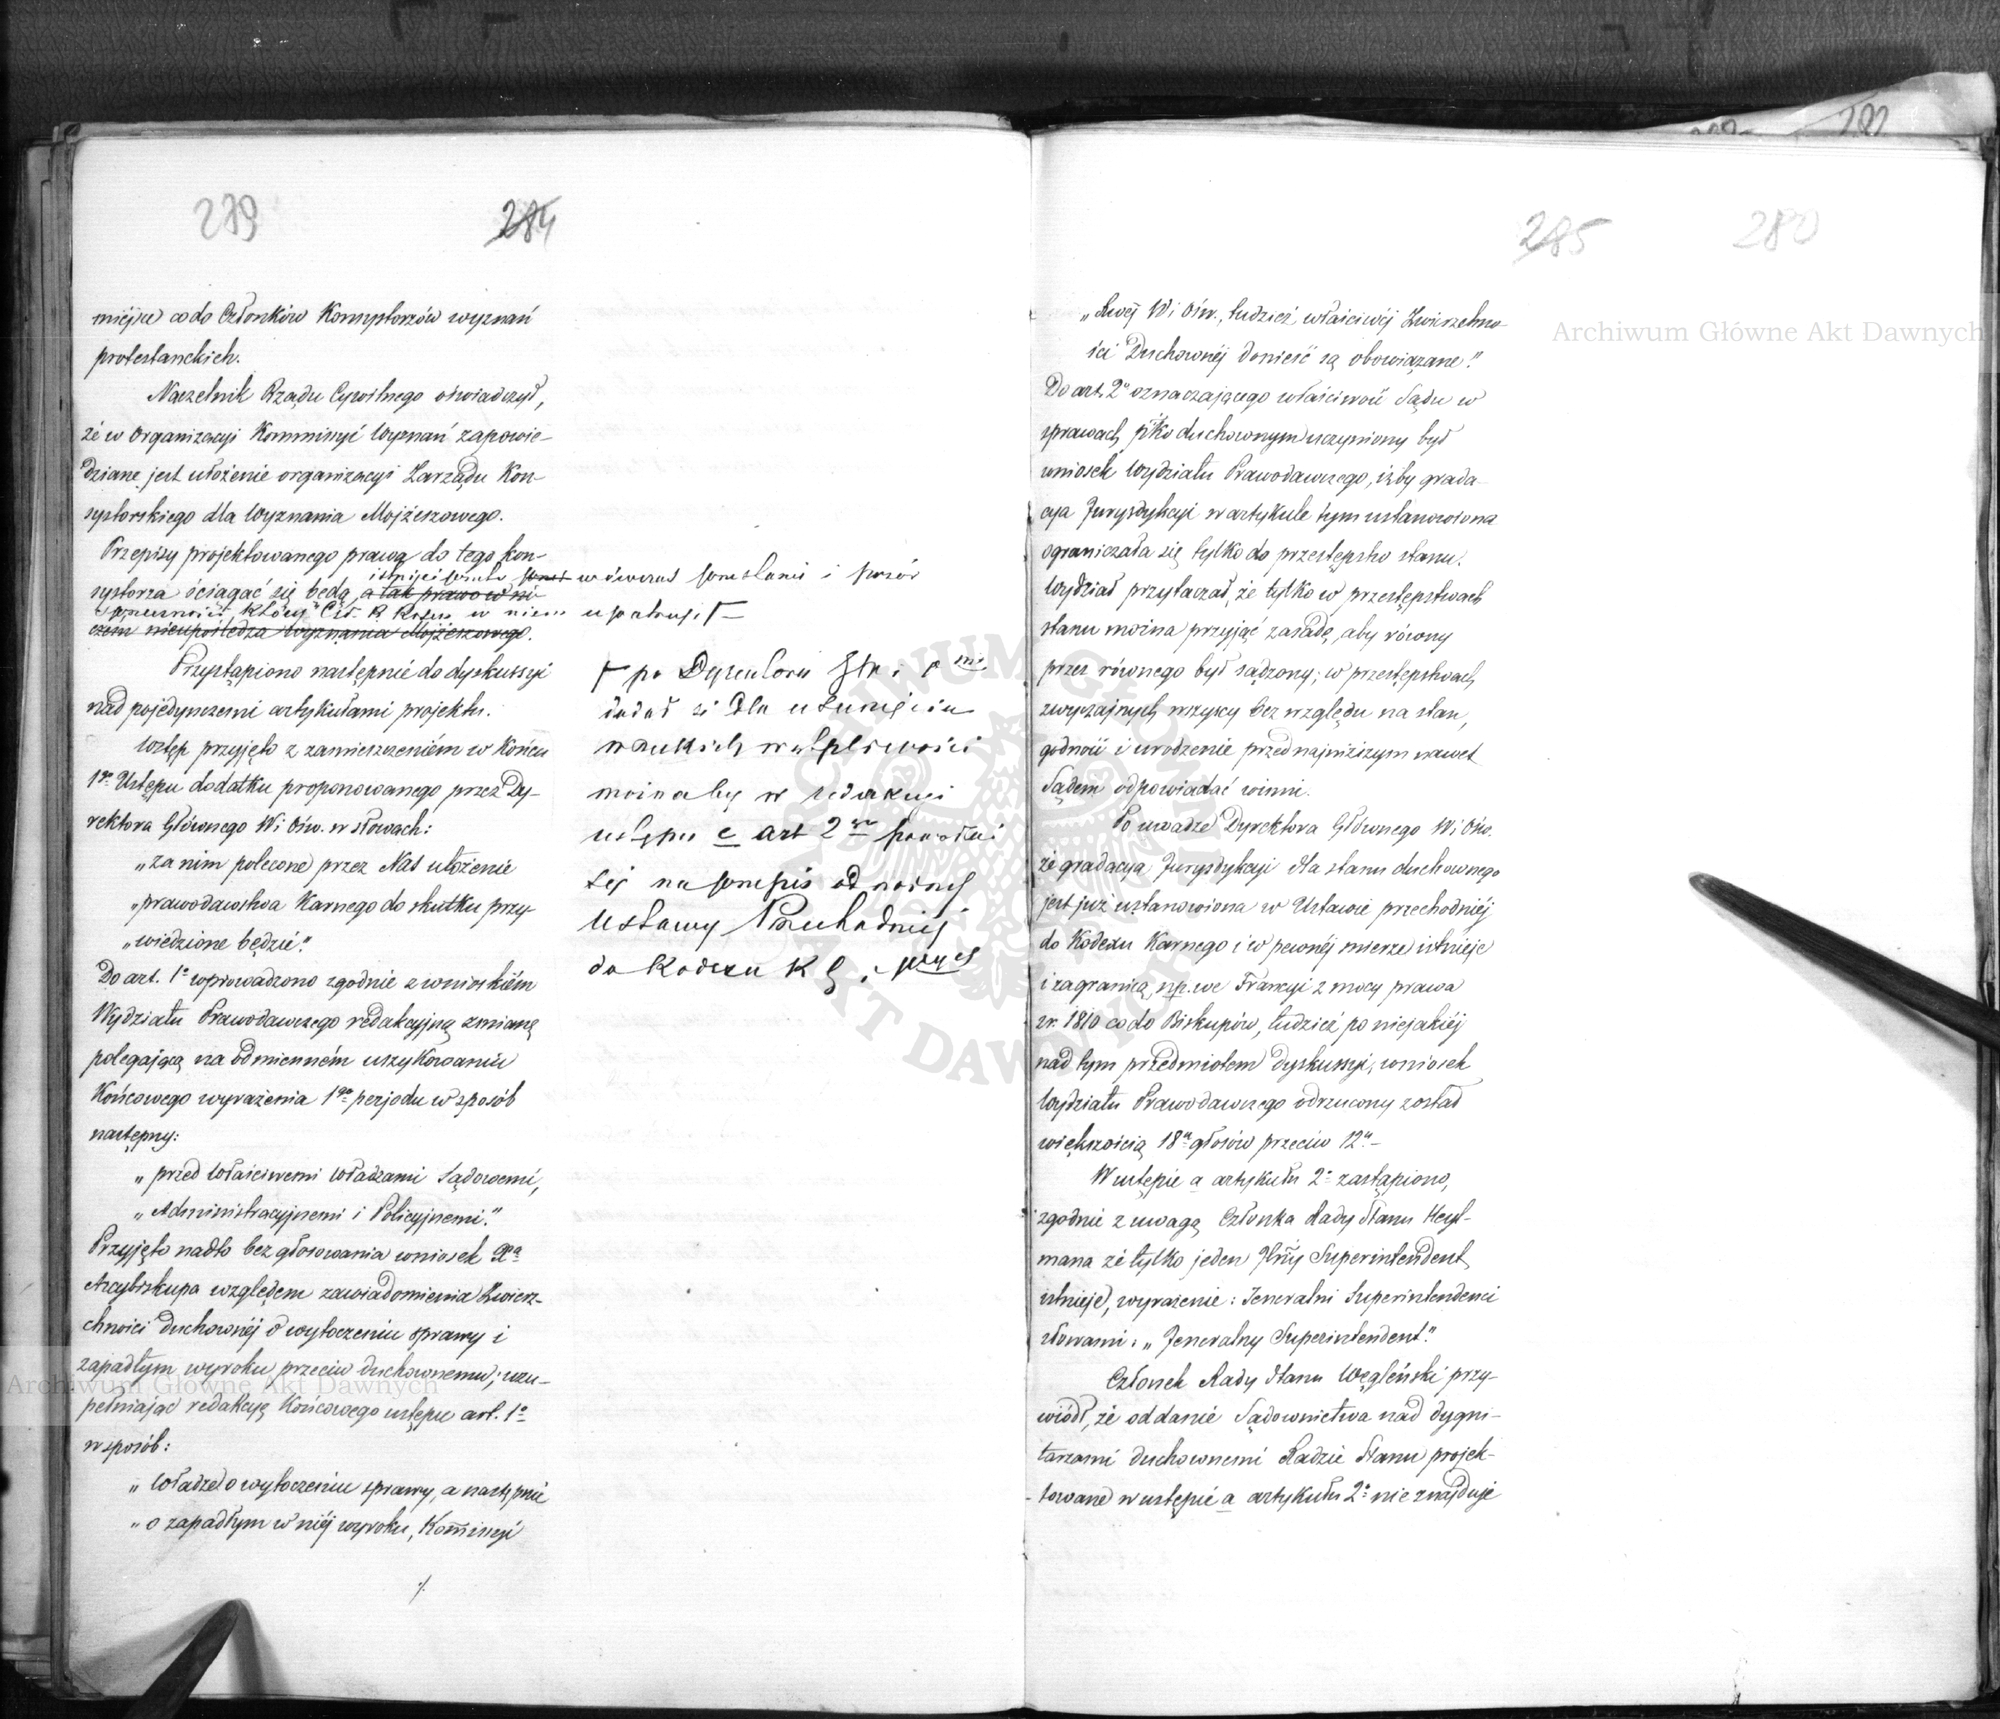 279
284
miéjsce co do Członków Konsystorzów wyznań
protestanckich.
Naczelnik Rządu Cywilnego oświadczył,
że w Organizacyi Kommissyi Wyznań zapowie-
dziane jest ułożenie organizacyi Zarządu Kon-
systorskiego dla Wyznania Mojżeszowego.
Przepisy projektowanego prawa do tego kon-
systorza ściągać się będą, a tak prawo w ni-
czem nieupośledza Wyznania Mojżeszowego.
Przystąpiono następnie do dyskussyi
nad pojedynczemi artykułami projektu.
Wstęp przyjęto z zamieszczeniém w Końcu
1go Ustępu dodatku proponowanego przez Dy-
rektora Głównego W i Ośw. w słowach:
„zanim polecone przez Nas ułożenie
„prawodawstwa Karnego do skutku przy-
„wiedzione będzie."
Do art. 1o wprowadzono zgodnie z wnioskiém
Wydziału Prawodawczego redakcyjną zmianę
polegającą na odmienném uszykowaniu
Końcowego wyrażenia 1go perjodu w sposób
następny:
„przed właściwemi Władzami Sądowemi,
„Administracyjnemi i Policyjnemi."
Przyjęto nadto bez głosowania wniosek Xa
Arcybiskupa względem zawiadomienia Zwierz-
chności duchownéj o wytoczeniu sprawy i
zapadłym wyroku przeciw duchownemu; uzu-
pełniając redakcyę Końcowego ustępu art. 1o
w sposób:
„Władze o wytoczeniu sprawy, a następnie
„o zapadłym w niéj wyroku, Kommissyi
./.
wówczas powstanie i
upatruje
po Dyrektora
dodał że dla usunięcia
wszelkich wątpliwości
możnaby w redakcyi
ustępu c art 2go powołać
się na przepis
Ustawy Przechodniéj
do Kodexu K G i
285
280
„Swéj W i Ośw., tudzież właściwéj Zwierzchno-
ści Duchownéj donieść są obowiązane."
Do art. 2o oznaczającego właściwość Sądu w
sprawach pko duchownym uczyniony był
wniosek Wydziału Prawodawczego, iżby grada-
cya Jurysdykcyi w artykule tym ustanowiona
ograniczała się tylko do przestępstw stanu.
Wydział przytaczał, że tylko w przestępstwach
stanu można przyjąć zasadę, aby równy
przez równego był sądzony; w przestępstwach
zwyczajnych wszyscy bez względu na stan,
godność i urodzenie przed najniższym nawet
Sądem odpowiadać winni.
Po uwadze Dyrektora Głównego W i Ośw.
że gradacya Jurysdykcyi dla stanu duchownego
jest już ustanowiona w Ustawie przechodniéj
do Kodexu Karnego i w pewnéj mierze istnieje
i zagranicą, np. we Francyi z mocy prawa
z r. 1810 co do Biskupów, tudzież po niejakiéj
nad tym przedmiotem dyskussyi, wniosek
Wydziału Prawodawczego odrzucony został
większością 18u głosów przeciw 12u –
W ustępie a artykułu 2o zastąpiono,
zgodnie z uwagą Członka Rady Stanu Heyl-
mana że tylko jeden Jlny Superintendent
istnieje, wyrażenie: Jeneralni Superintendenci
słowami: „Jeneralny Superintendent."
Członek Rady Stanu Węgleński przy-
wiódł, że oddanie Sądownictwa nad dygni-
tarzami duchownemi Radzie Stanu projek-
towane w ustępie a artykułu 2o nie znajduje
Archiwum Główne Akt Dawnych
Archiwum Główne Akt Dawnych
ARCHIWUM GŁÓWNE AKT DAWNYCH